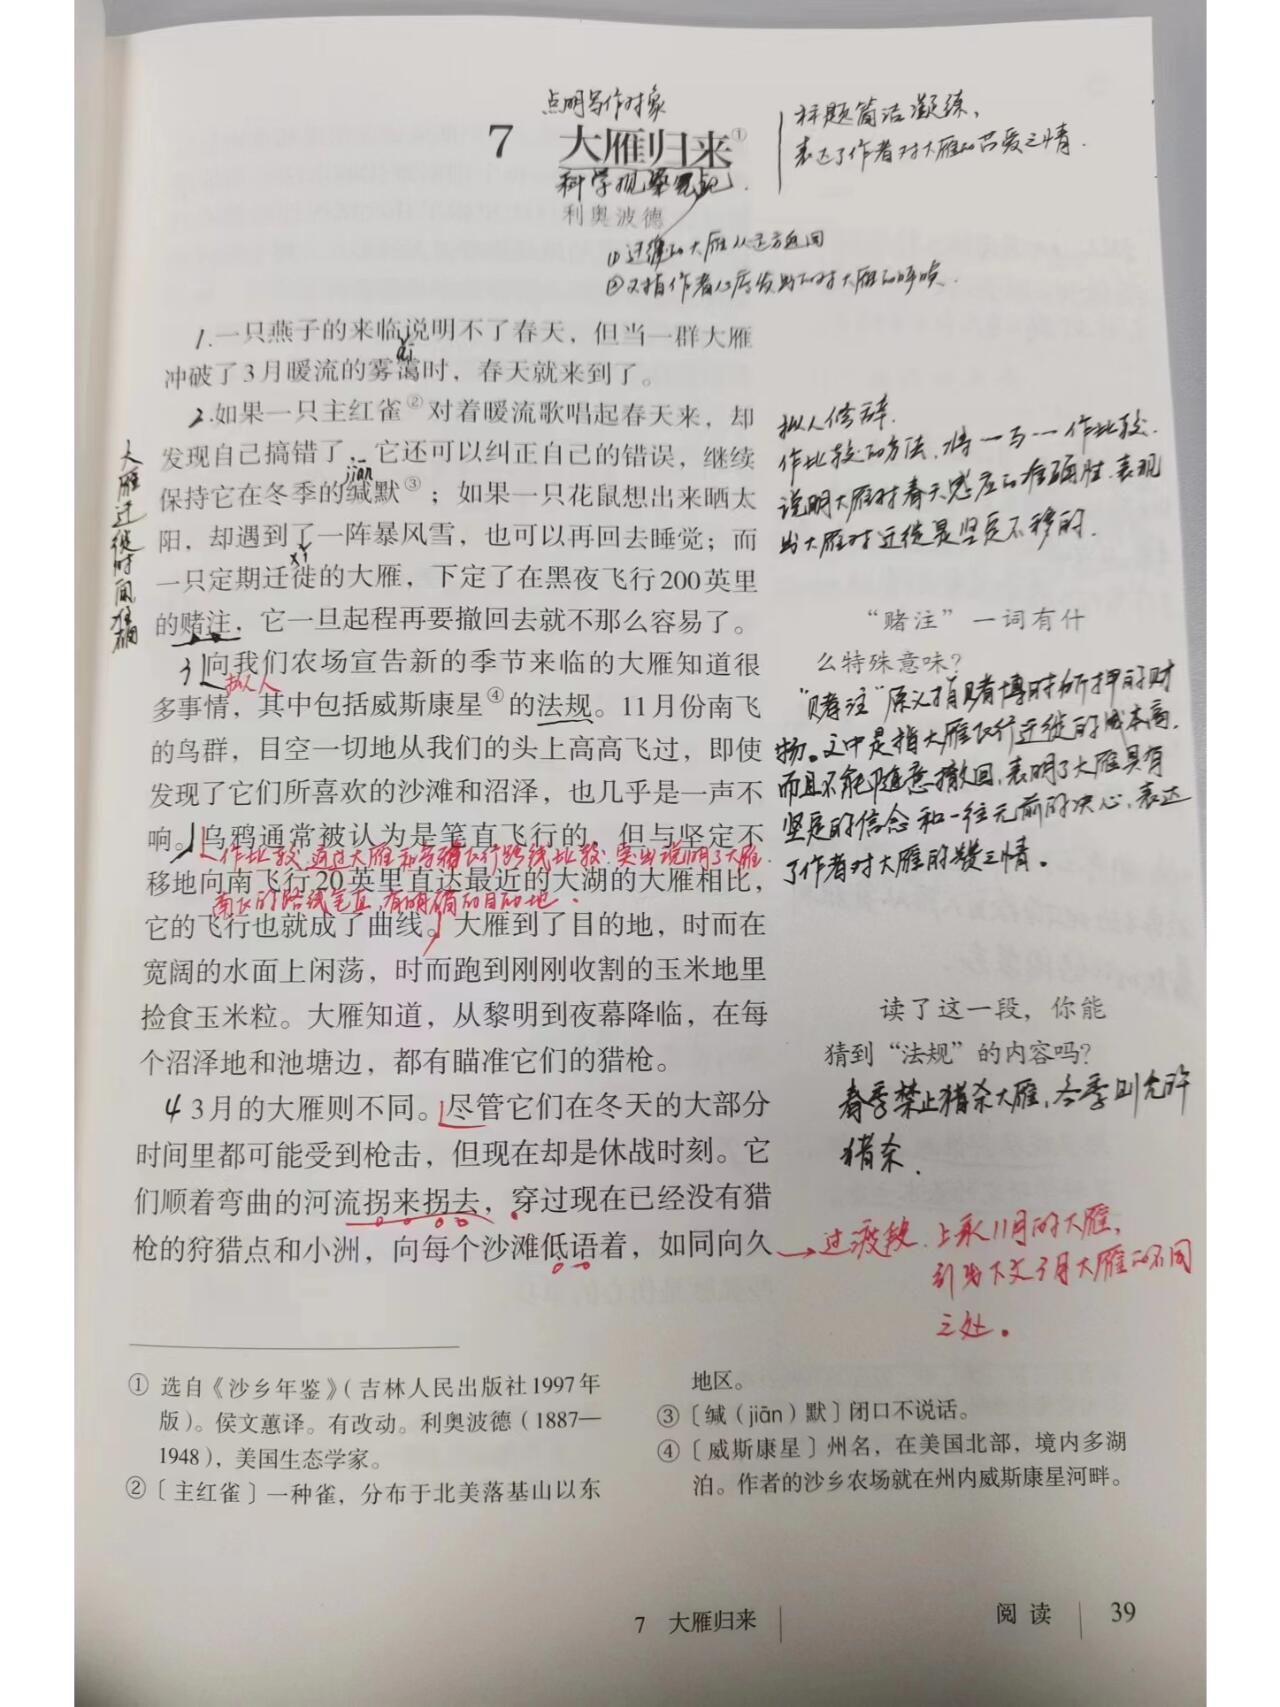 点明写作对象
7 大雁归来①
科学观察笔记.
利奥波德
标题简洁凝练,
表达了作者对大雁的喜爱之情.
①迁徙的大雁从远方返回
②又指作者心底发出的对大雁的呼唤.
1.一只燕子的来临说明不了春天，但当一群大雁
ǎi
冲破了3月暖流的雾霭时，春天就来到了。
2.如果一只主红雀②对着暖流歌唱起春天来，却
发现自己搞错了，它还可以纠正自己的错误，继续
jiān
保持它在冬季的缄默③；如果一只花鼠想出来晒太
阳，却遇到了一阵暴风雪，也可以再回去睡觉；而
xǐ
一只定期迁徙的大雁，下定了在黑夜飞行200英里
的赌注，它一旦起程再要撤回去就不那么容易了。
大雁迁徙时间准确
拟人修辞.
作比较的方法,将一与一作比较.
说明大雁对春天感应的准确性,表现
出大雁对迁徙是坚定不移的.
3向我们农场宣告新的季节来临的大雁知道很
拟人
多事情，其中包括威斯康星④的法规。11月份南飞
的鸟群，目空一切地从我们的头上高高飞过，即使
发现了它们所喜欢的沙滩和沼泽，也几乎是一声不
响。乌鸦通常被认为是笔直飞行的，但与坚定不
作比较,通过大雁和乌鸦飞行路线比较,突出说明了大雁
移地向南飞行20英里直达最近的大湖的大雁相比，
南飞的路线笔直,有明确的目的地.
它的飞行也就成了曲线。大雁到了目的地，时而在
宽阔的水面上闲荡，时而跑到刚刚收割的玉米地里
捡食玉米粒。大雁知道，从黎明到夜幕降临，在每
个沼泽地和池塘边，都有瞄准它们的猎枪。
“赌注”一词有什
么特殊意味？
“赌注”原义指赌博时所押的财
物。文中是指大雁飞行迁徙的成本高,
而且不能随意撤回,表明了大雁具有
坚定的信念和一往无前的决心,表达
了作者对大雁的赞之情。
读了这一段，你能
猜到“法规”的内容吗？
春季禁止猎杀大雁,冬季则允许
猎杀.
4 3月的大雁则不同。尽管它们在冬天的大部分
时间里都可能受到枪击，但现在却是休战时刻。它
们顺着弯曲的河流拐来拐去，穿过现在已经没有猎
枪的狩猎点和小洲，向每个沙滩低语着，如同向久
过渡段.上承11月的大雁,
引出下文3月大雁的不同
之处。
① 选自《沙乡年鉴》（吉林人民出版社1997年
版）。侯文蕙译。有改动。利奥波德（1887—
1948），美国生态学家。
②〔主红雀〕一种雀，分布于北美落基山以东
地区。
③〔缄（jiān）默〕闭口不说话。
④〔威斯康星〕州名，在美国北部，境内多湖
泊。作者的沙乡农场就在州内威斯康星河畔。
7 大雁归来
阅读 39